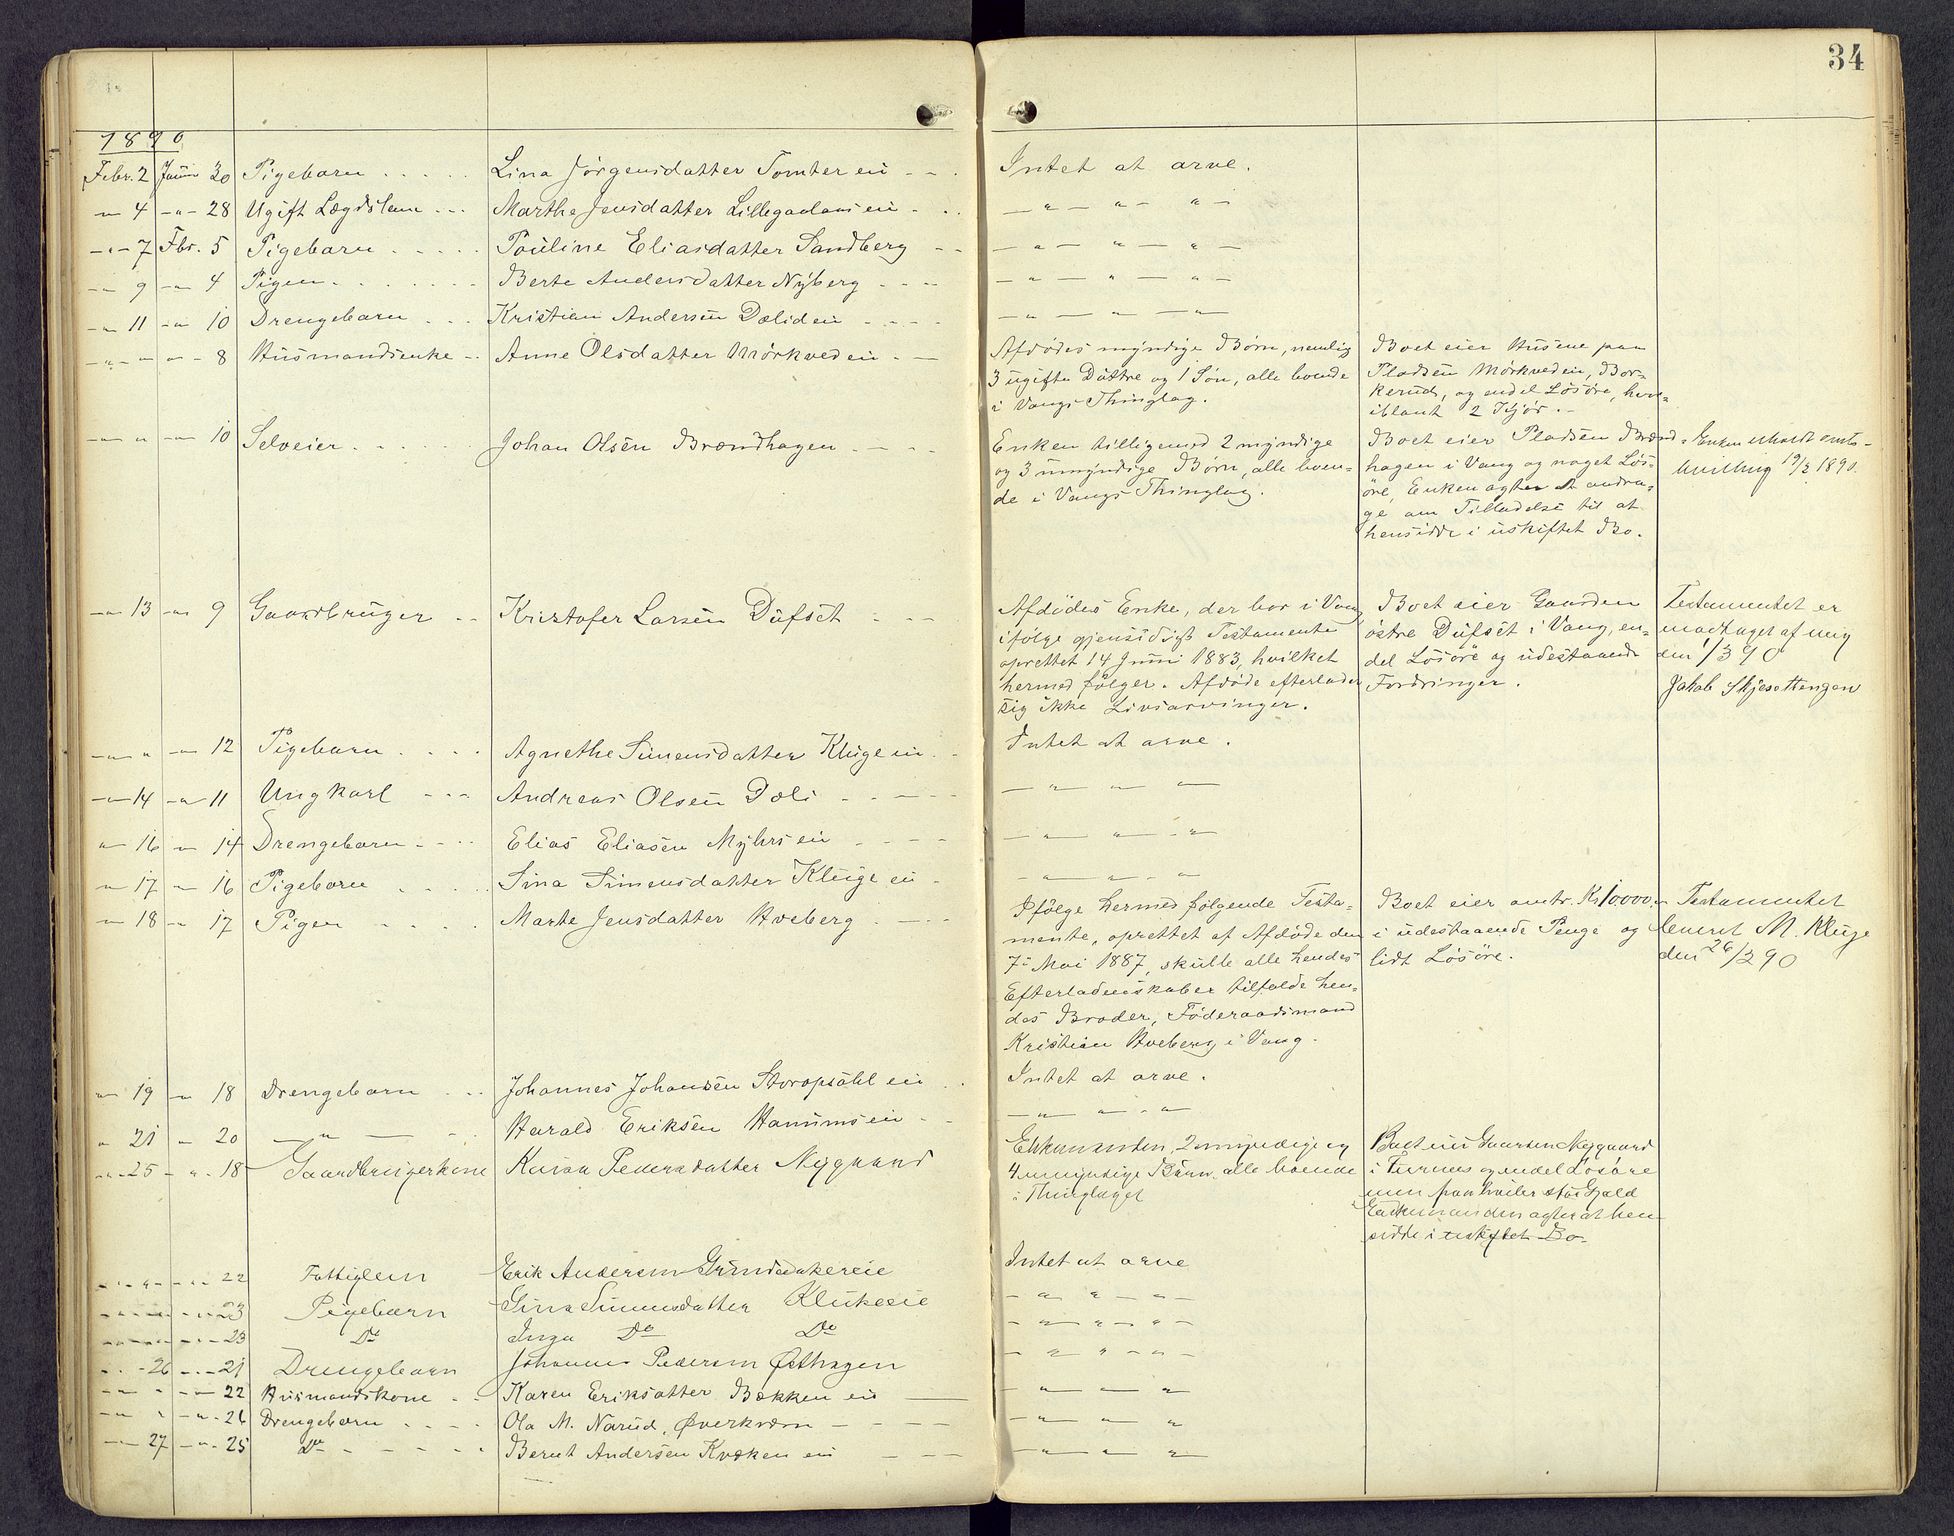 34
1890
Febr. 2 Janu 30 Pigebarn Lina Jörgensdatter Tomter ei Intet at arve.
-"- 4 -"- 28 Ugift Lægdslem Marthe Jensdatter Lillegaardsei -"- "- "-
-"- 7 Fbr. 5 Pigebarn Pouline Eliasdatter Sandberg -"- "- "-
-"- 9 -"- 4 Pigen Berte Andersdatter Nyberg -"- "- "-
-"- 11 -"- 10 Drengebarn Kristian Andersen Dæliei -"- "- "-
-"- " -"- 8 Husmandsenke Anne Olsdatter Mörkvedei
Afdödes myndige Börn, nemlig
3 ugifte Döttre og 1 Sön, alle boende
i Vangs Thinglag.
Boet eier Husene paa
Pladsen Mörkveden, Bor-
kerud, og endel Lösöre, hvor-
iblant 2 Kjör.
-"- " -"- 10 Selveier Johan Olsen Brændhagen
Enken tilligemed 2 myndige
og 3 umyndige Börn, alle boen-
de i Vangs Thinglag.
Boet eier Pladsen Brænd-
hagen i Vang og noget Lös-
öre, Enken agter at andra-
ge om Tilladelse til at
hensidde i uskiftet Bo.
Enken meddelt amts-
bevilling 19/2 1890.
-"- 13 -"- 9 Gaardbruger Kristofer Larsen Dufset
Afdödes Enke, der bor i Vang
ifölge gjensidigt Testamente
oprettet 14 Juni 1883, hvilket
hermed fölger. Afdöde efterlader
sig ikke Livsarvinger.
Boet eier Gaarden
östre Dufset i Vang, en-
del Lösöre og udestaaende
Fordringer.
Testamentet er
modtaget af mig
den 1/3 90
Jakob Skjesettengen
-"- " -"- 12 Pigebarn Agnethe Simensdatter Klugeei Intet at arve.
-"- 14 -"- 11 Ungkarl Andreas Olsen Dæli -"- "- "-
" 16 -"- 14 Drengebarn Elias Eliasen Myhrsei -"- "- "-
-"- 17 -"- 16 Pigebarn Sina Simensdatter Klugeei -"- "- "-
-"- 18 -"- 17 Pigen Marte Jensdatter Hveberg
Ifölge hermed fölgende Testa-
mente, oprettet af Afdöde den
7de Mai 1887, skulle alle hendes
Efterladenskaber tilfalde hen-
des Broder, Föderaadsmand
Kristian Hveberg i Vang.
Boet eier omtr. Kr 10000.
i udestaaende Penge og
lidt Lösöre.
Testamentet
leveret M. Kluge
den 26/3 90
-"- 19 -"- 18 Drengebarn Johannes Johansen Storopsahl ei Intet at arve.
" 21 " 20 -"- Harald Eriksen Hanumsei -"- "- "
-"- 25 -"- 18 Gaardbrugerkone Karen Pedersdatter Nygaard
Enkemanden, 2 myndige og
4 umyndige Börn, alle boende
i Thinglaget
Boet eier Gaarden Nygaard
i Furnes og endel Lösöre
men paahviler stor Gjæld
Enkemanden agter at hen-
sidde i uskiftet Bo.
-"- " -"- 22 Fattiglem Erik Andersen Grundsetakereie Intet at arve
-"- " -"- 23 Pigebarn Gina Simensdatter Klukeeie -"- "- "-
-"- " -"- 23 Do Inga Do Do -"- "- "-
-"- 26 -"- 21 Drengebarn Johannes Pedersen Østhagen -"- "- "-
-"- " -"- 22 Husmandskone Karen Eriksdatter Bækken ei -"- "- "
-"- " -"- 26 Drengebarn Ola M. Narud, Øverkvæn -"- "- "
-"- 27 -"- 25 Do Bernt Andersen Kvæken ei -"- "- "